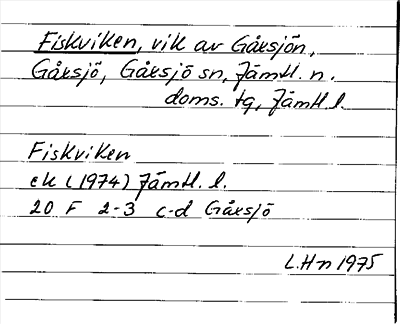 Fiskviken, vik av Gåxsjön,
Gåxsjö, Gåxsjö sn, Jämtl. n.
doms. tg, Jämtl l.
Fiskviken
ek (1974) Jämtl. l.
20 F 2-3 c-d Gåxsjö
L.H-n 1975